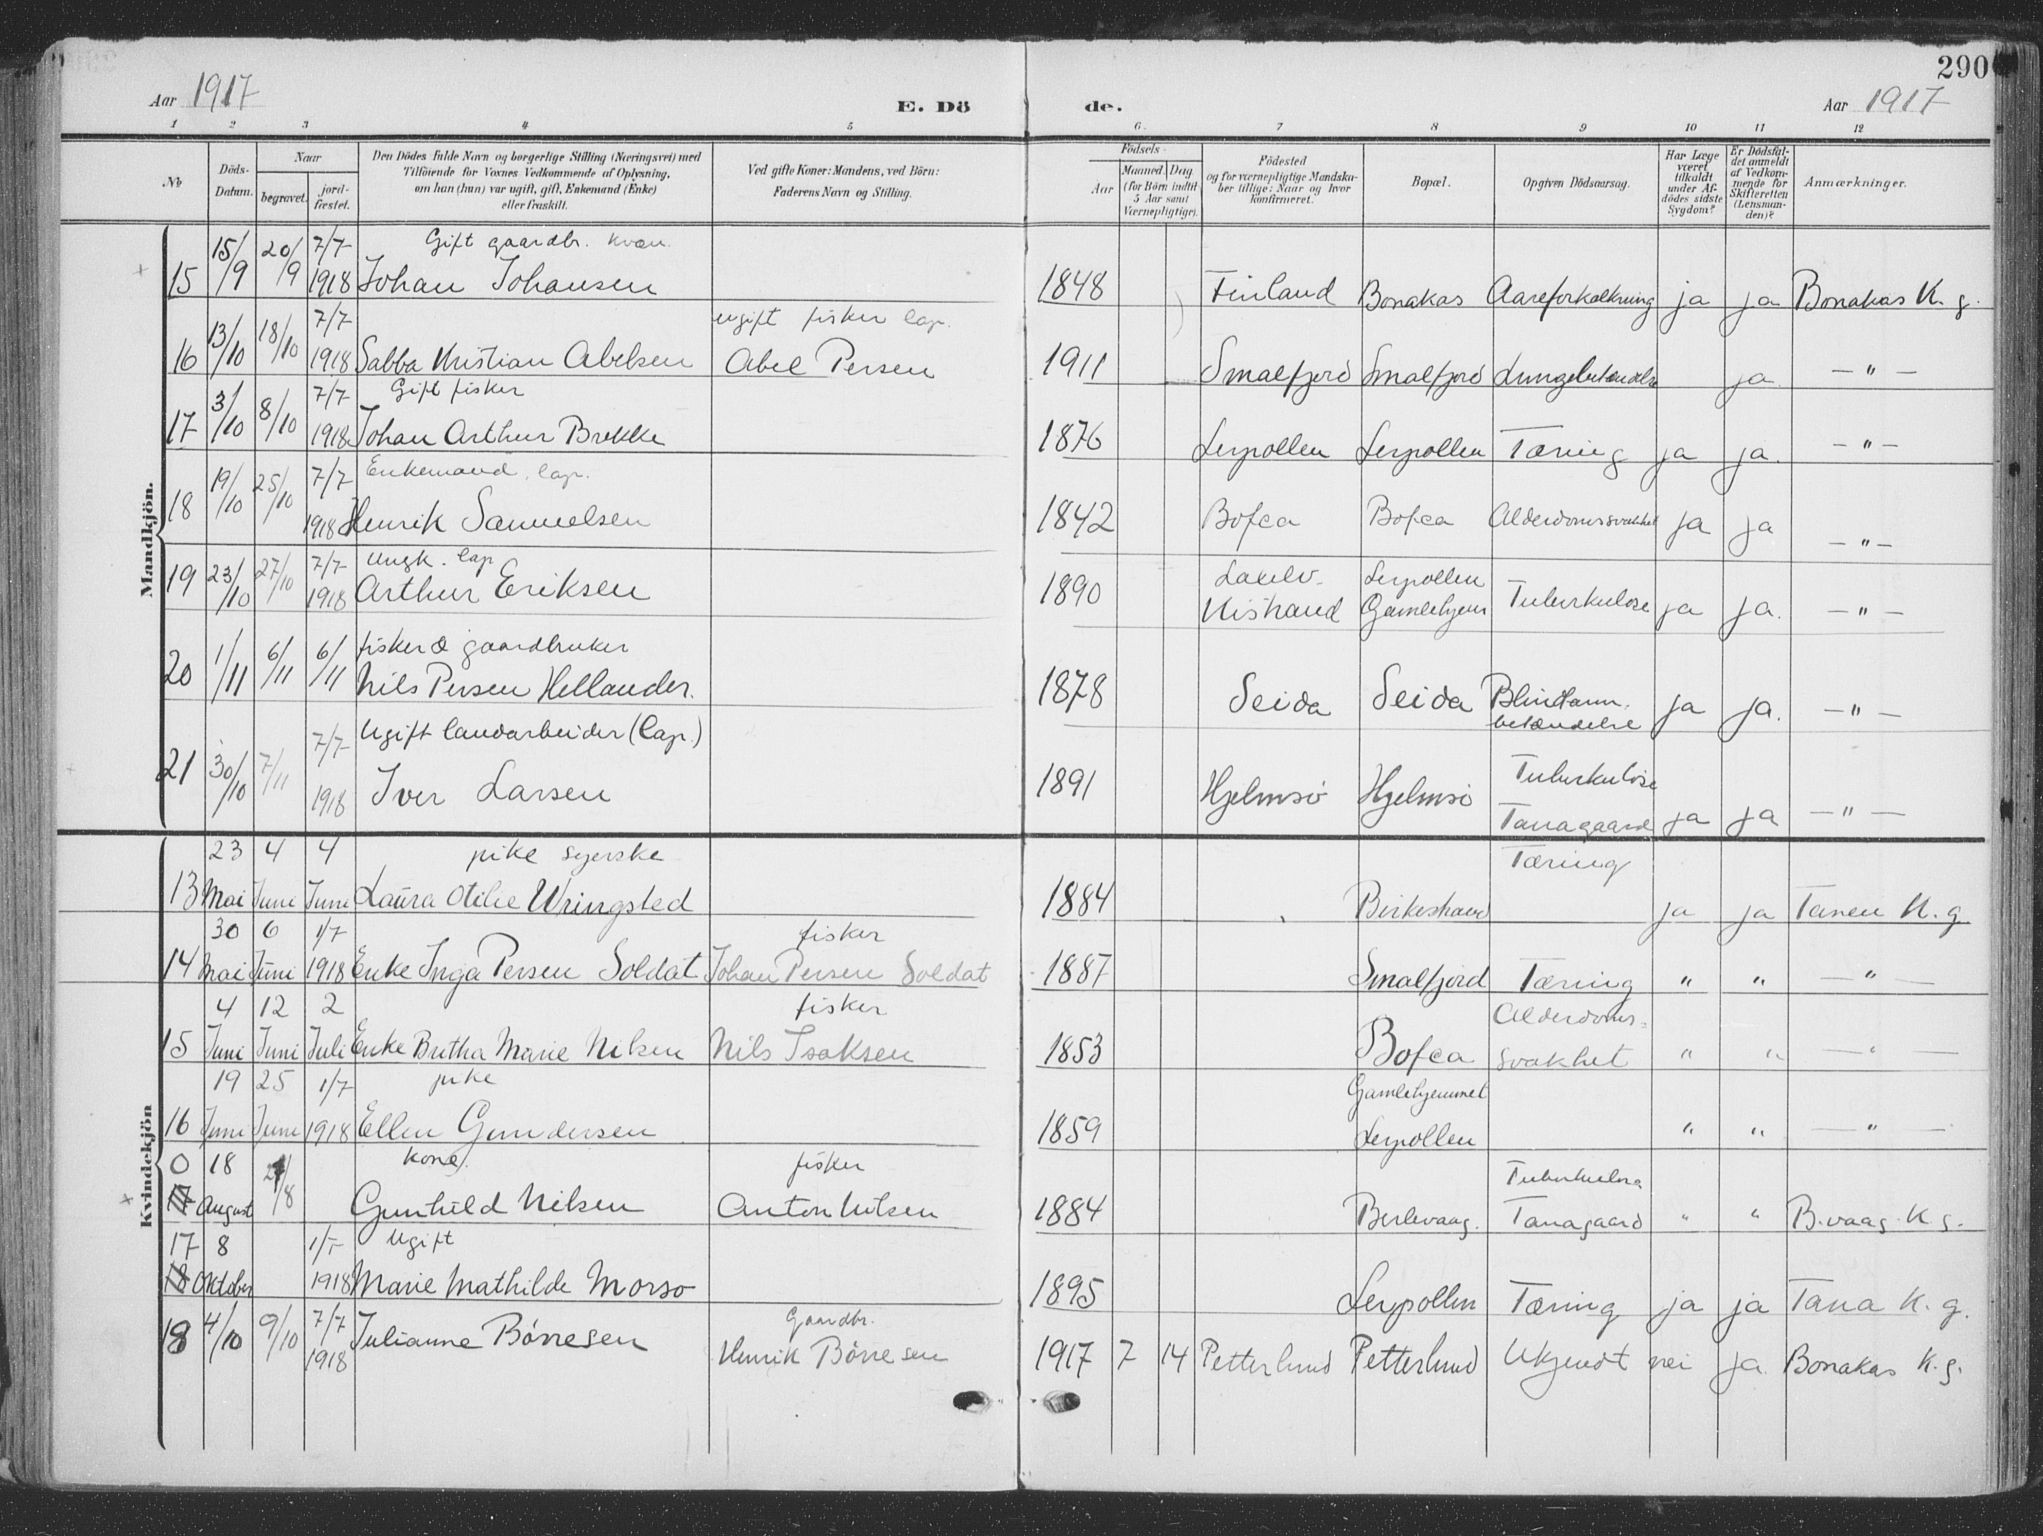 290
Aar 1917 E. Dö de. Aar 1917
1 2 3 4 5 6. 7 8 9 10 11 12
No
Döds-Datum.
Naar
begravet.
jord-fæstet.
Den Dödes fulde Navn og borgerlige Stilling (Næringsvei) med
Tilföiende for Voxnes Vedkommende af Oplysning,
om han (hun) var ugift, gift, Enkemand (Enke)
eller fraskilt.
Ved gifte Koner: Mandens, ved Börn:
Faderens Navn og Stilling.
Födsels-
Aar
Maaned. Dag
(for Börn indtil
5 Aar samt
Værnepligtige).
Födested
og for værnepligtige Mandska-
ber tillige: Naar og hvor
konfirmeret.
Bopæl.
Opgiven Dödsaarsag.
Har Læge
været
tilkaldt
under Af-
dödes sidste
Sygdom?
Er Dödsfal-
det anmeldt
af Vedkom-
mende for
Skifteretten
(Lensman-
den)?
Anmærkninger.
Mandkjön.
15 15/9 20/9 7/7 1918 Gift gaardbr. kvæn.
Johan Johansen 1848 Finland Bonakas Aareforkalkning ja ja Bonakas K. g.
16 13/10 18/10 7/7 1918 Sabba Kristian Abelsen ugift fisker lap.
Abel Persen 1911 Smalfjord Smalfjord Lungebetændelse ja — " —
17 3/10 8/10 7/7 1918 Gift fisker
Johan Arthur Brekke 1876 Leirpollen Leirpollen Tæring ja ja. — " —
18 19/10 25/10 7/7 1918 Enkemand. lap.
Henrik Samuelsen 1842 Bofca Bofca Alderdomssvakhet ja ja — " —
19 23/10 27/10 7/7 1918 Ungk. lap
Arthur Eriksen 1890 Laxelv. Kistrand Leirpollen Gamlehjem Tuberkulose ja ja. — " —
20 1/11 6/11 6/11 fisker & gaardbruker
Nils Persen Hellander. 1878 Seida Seida Blindtarm.
betændelse ja ja. — " —
21 30/10 7/11 7/7 1918 Ugift landarbeider (lap.)
Iver Larsen 1891 Hjelmsö Hjelmsö Tuberkulose
Tanagaard ja ja — " —
Kvindekjön
13 23 Mai 4 Juni 4 Juni pike syerske
Laura Otilie Wringsted 1884 Birkestrand Tæring ja ja Tanen K. g
14 30 Mai 6 Juni 1/7 1918 Enke Inga Persen Soldat fisker
Johan Persen Soldat 1887 Smalfjord Tæring " " — " —
15 4 Juni 12 Juni 2 Juli Enke Britha Marie Nilsen fisker
Nils Isaksen 1853 Bofca Alderdoms-
svakhet " " — " —
16 19 Juni 25 Juni 1/7 1918 pike
Ellen Gundersen 1859 Gamlehjemmet
Leirpollen " " — " —
0 17 18 August /8 kone
Gunhild Nilsen fisker
Anton Nilsen 1884 Berlevaag. Tuberkulose
Tanagaard " " B.vaag. K. g.
17 18 8 Oktober 1/7 1918 Ugift
Marie Mathilde Morso 1895 Leirpollen Tæring ja ja Tana K. g.
18 4/10 9/10 7/7 1918 Julianne Börresen Gaardbr.
Henrik Börresen 1917 7 14 Petterlund Petterlund Ukjendt nei ja. Bonakas K. g.